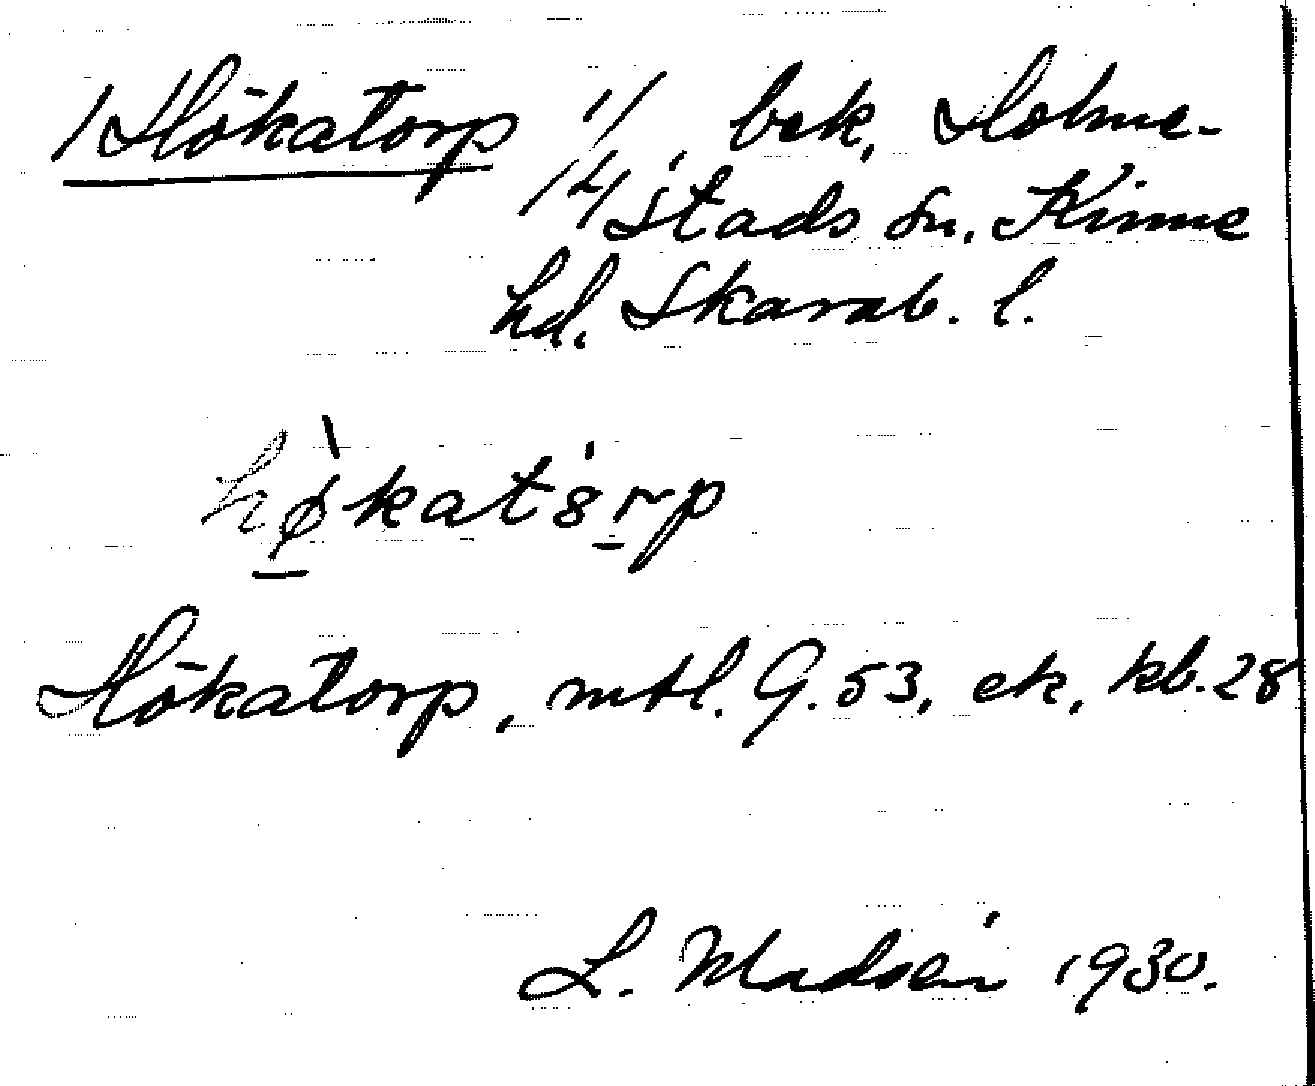 /Hökatorp 1/4, bek, Holme-
stads sn. Kinne
hd. Skarab. l.
hø̀katȯrp
Hökatorp, mtl. G. 53, ek, kb. 28
L. Madsén 1930.